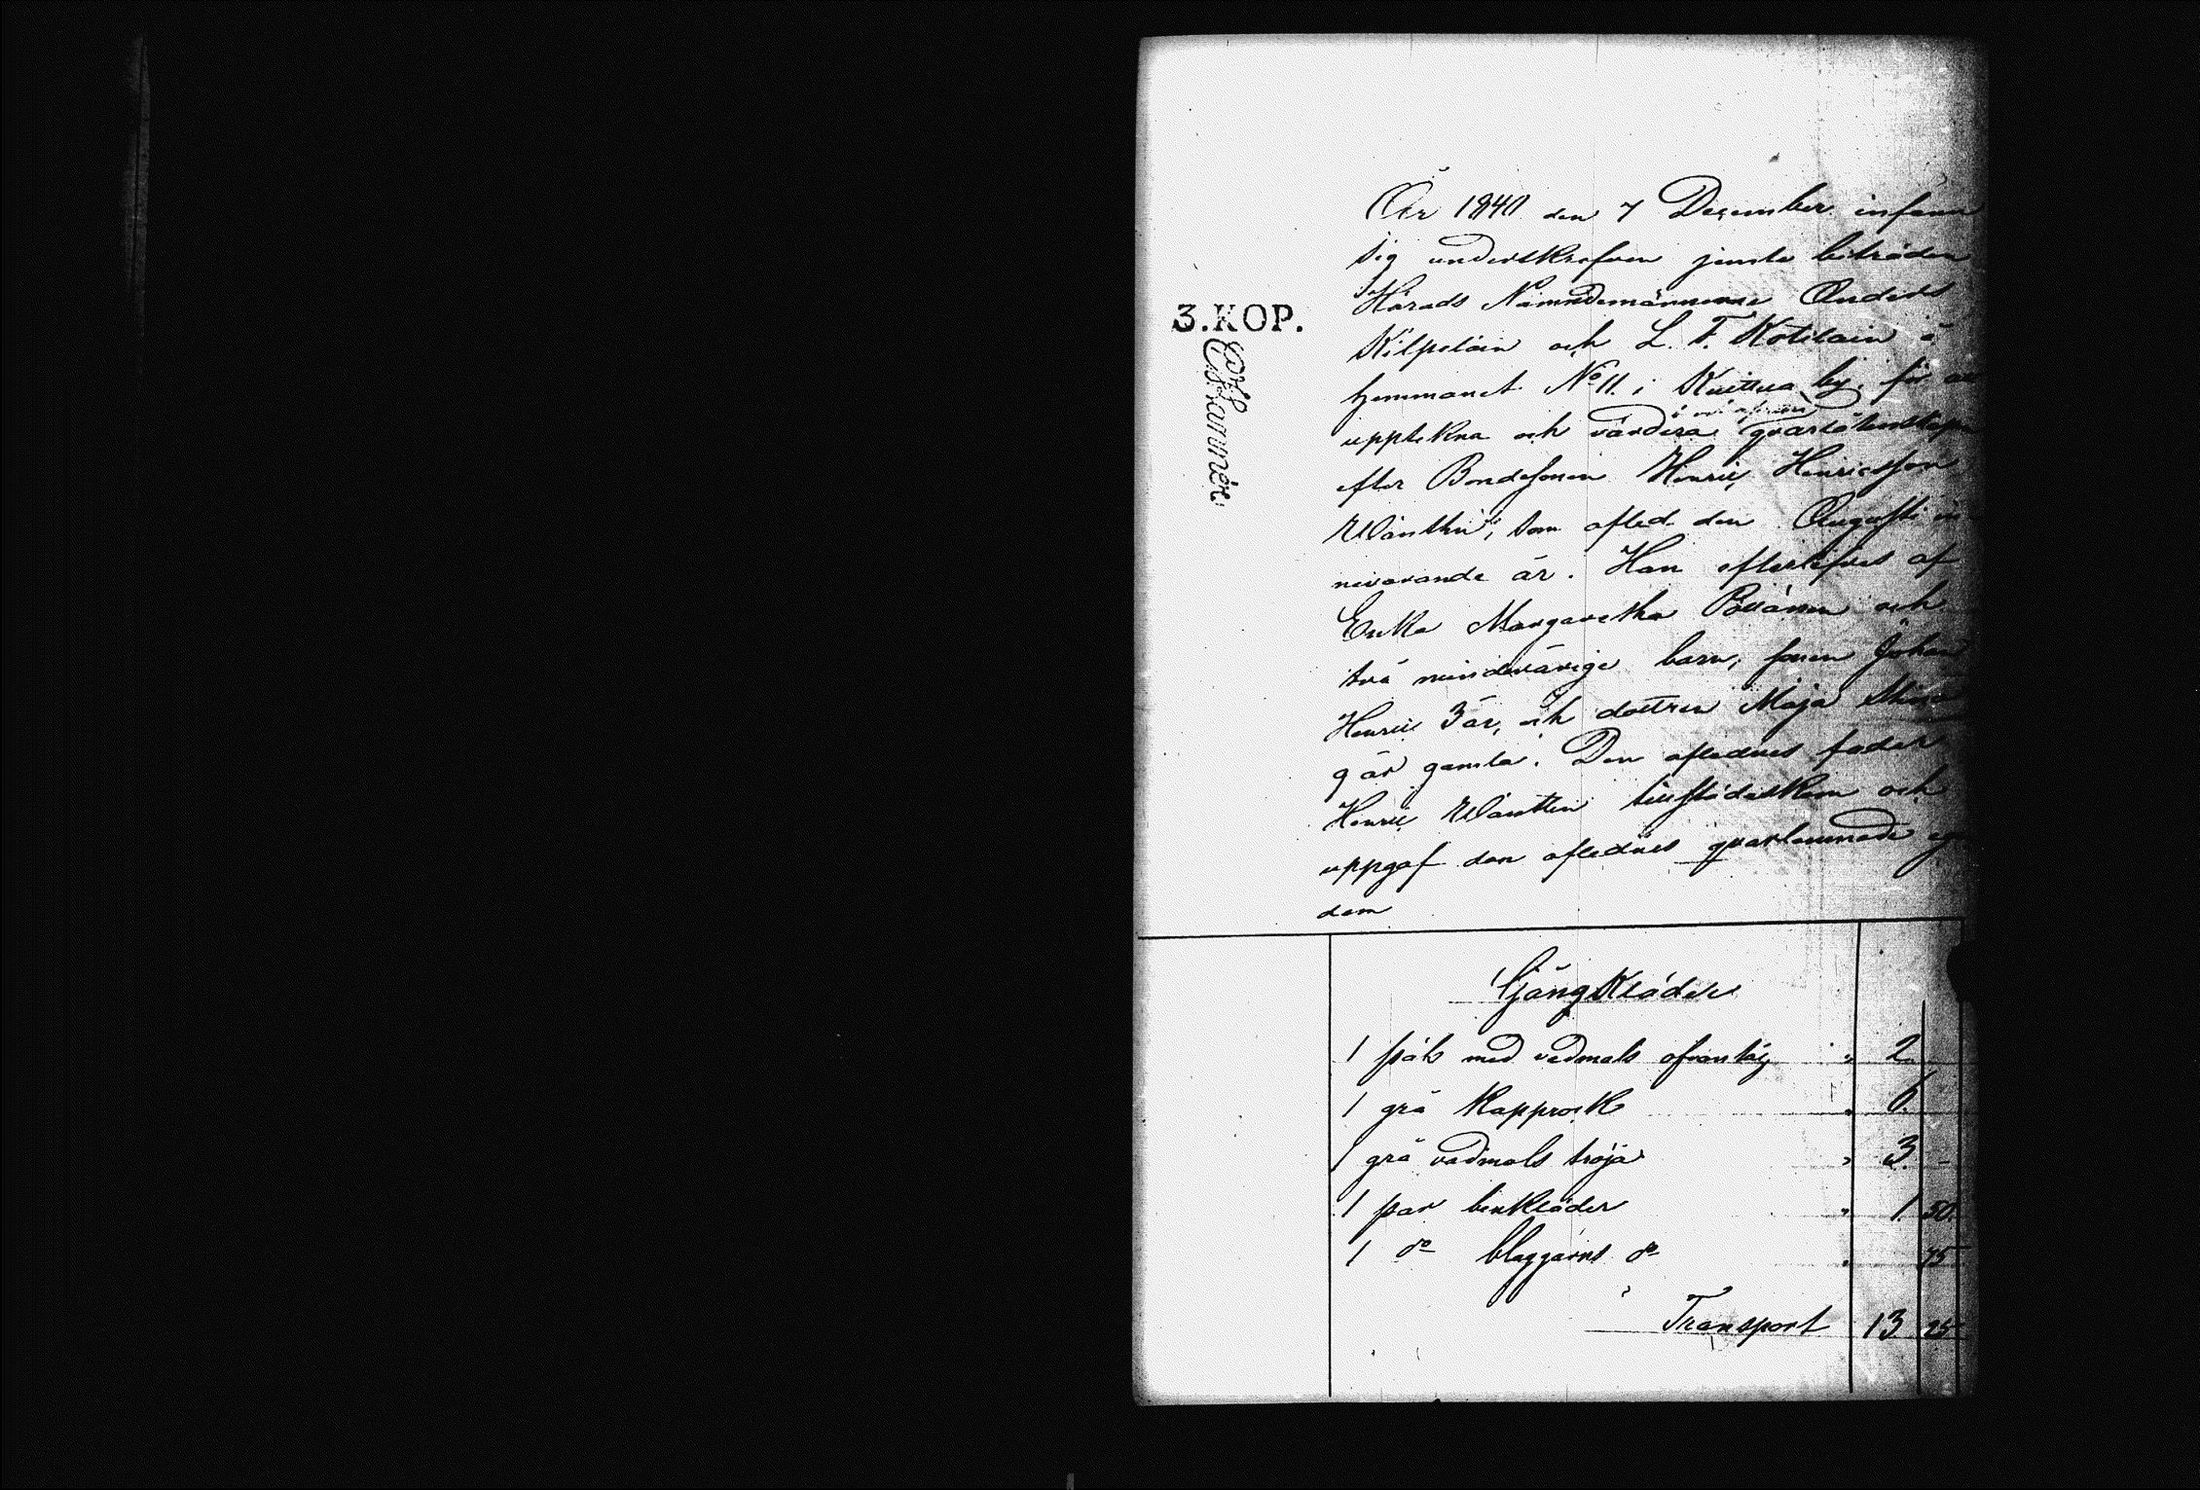 3.KOP.
År 1840 den 7 December infann
sig underskrefven jemte biträden
Härads Nämndemännerne Anders
Kilpeläin och L. F. Kotilain å
hemmanet No 11 i Kuittua by, för att
upptekna och värdera qvarlåtenskapen
efter Bondesonen Henric Henricsson
som afled den Augusti in
nevarande år. Han efterlefves af
Enka Margaretha och
två minderårige barn, sonen Johan
Henric 3 år, och dottren Maja
9 år gamla. Den aflednes fader
Henric tillstädeskom och
uppgaf den aflednes qvarlemnade egen
dom
Gångkläder
1 päls med vadmals 2
1 grå Kapprock 6.
1 grå vadmals tröja 3. -
1 par benkläder 1. 50.
1 do blaggarns do 75
Transport 13 25